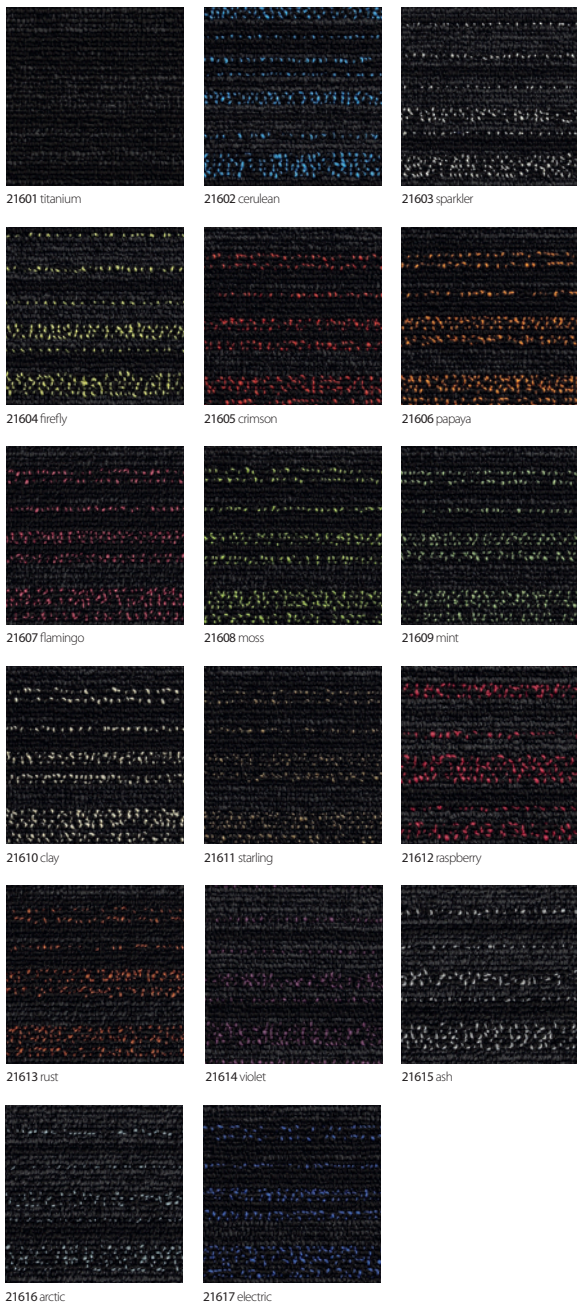 21601 titanium
21602 cerulean
21603 sparkler
21604 firefly
21605 crimson
21606 papaya
21607 flamingo
21608 moss
21609 mint
21610 clay
21611 starling
21612 raspberry
21613 rust
21614 violet
21615 ash
21616 arctic
21617 electric